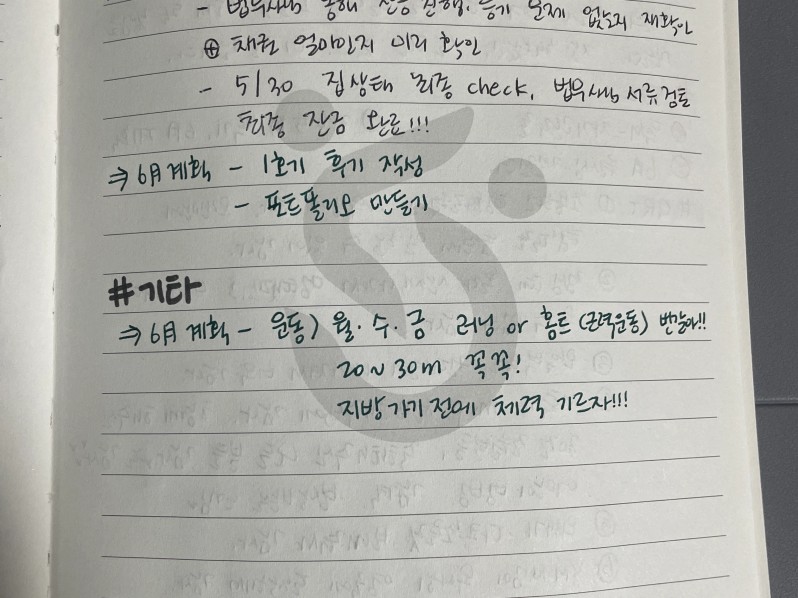 - 법무사님 통해 잔금 진행. 등기 문제 없는지 재확인
⊕ 채권 얼마인지 미리 확인
- 5/30 집상태 최종 check, 법무사님 서류 검토
최종 잔금 완료!!!
⇒ 6月 계획 - 1호기 후기 작성
- 포트폴리오 만들기
#기타
⇒ 6月 계획 - 운동) 월·수·금 러닝 or 홈트 (근력운동) 번갈아!!
20~30m 꼭꼭!
지방가기 전에 체력 기르자!!!